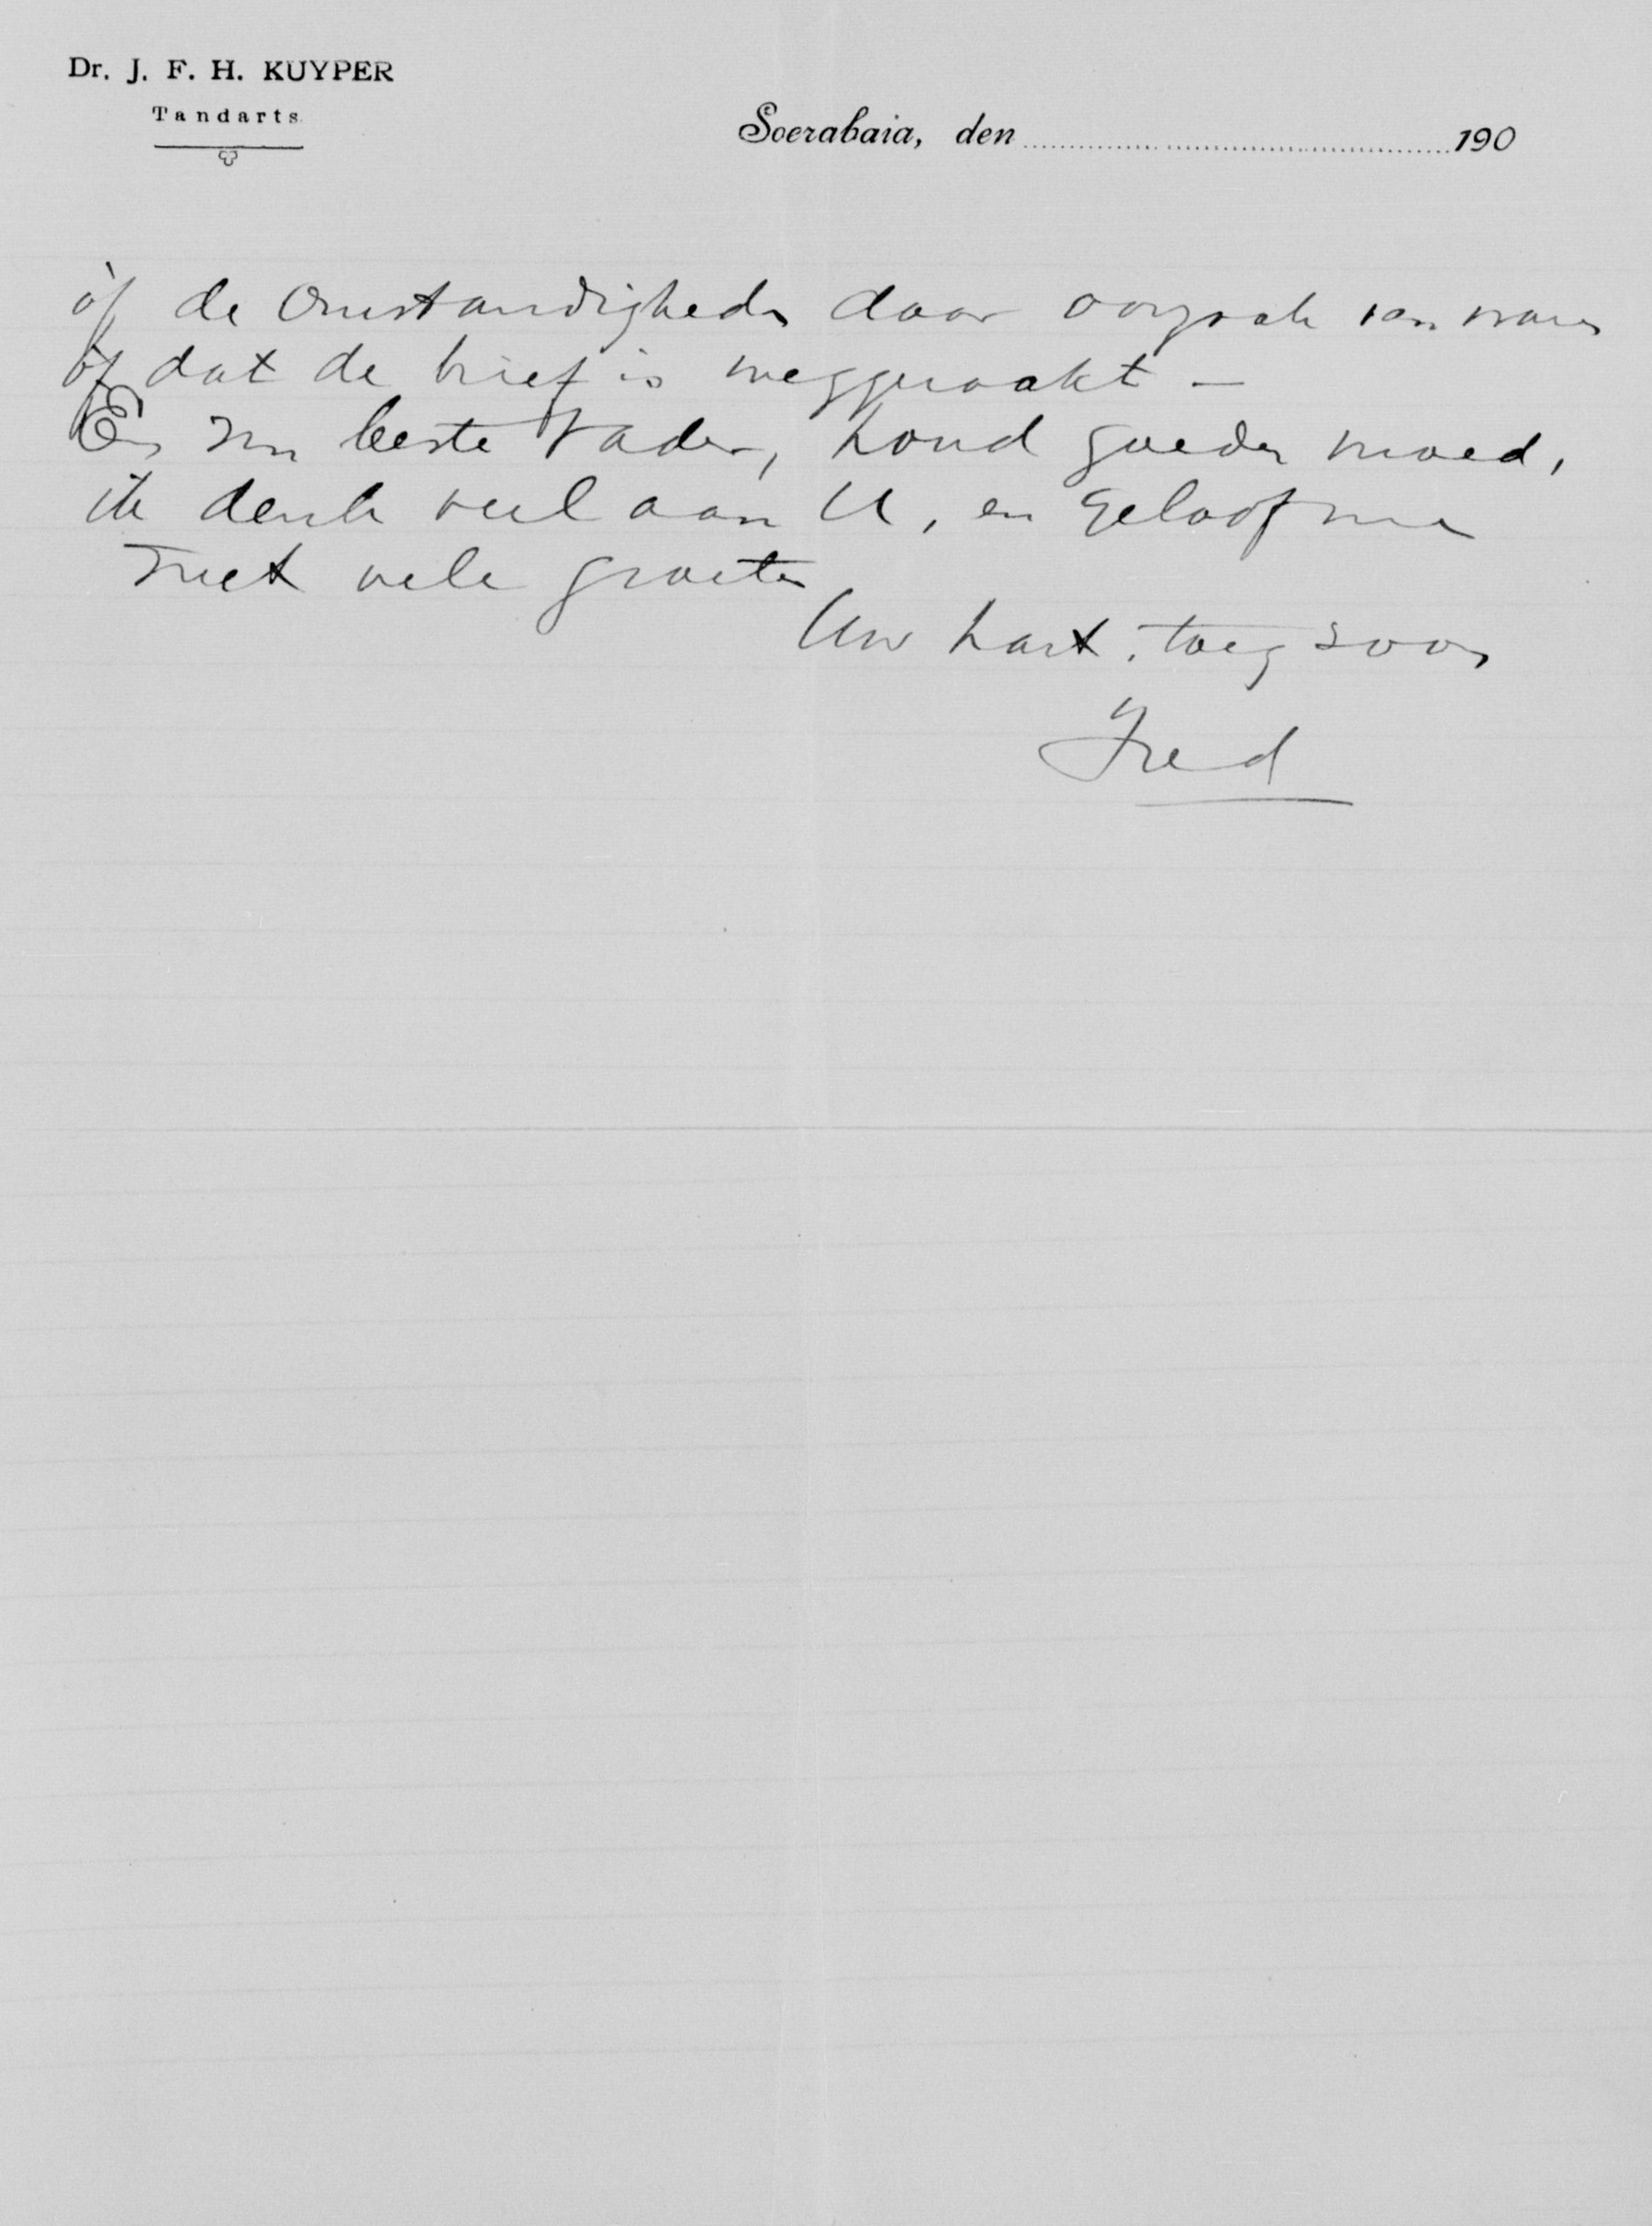 Dr. J. F. H. KUYPER
Tandarts
Soerabaia, den 190
òf de Omstandigheden daar oorzaak van waren
òf dat de brief is weggeraakt —
En nu beste Vader, houd goeden moed,
ik denk veel aan U, en geloof me
met vele groeten
Uw hart. toeg zoon
Fred